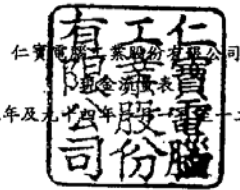 仁寶電腦工業股份有限公司
現金流量表
年及九十四年一月一日至十二
仁寶電腦
工業股份
有限公司